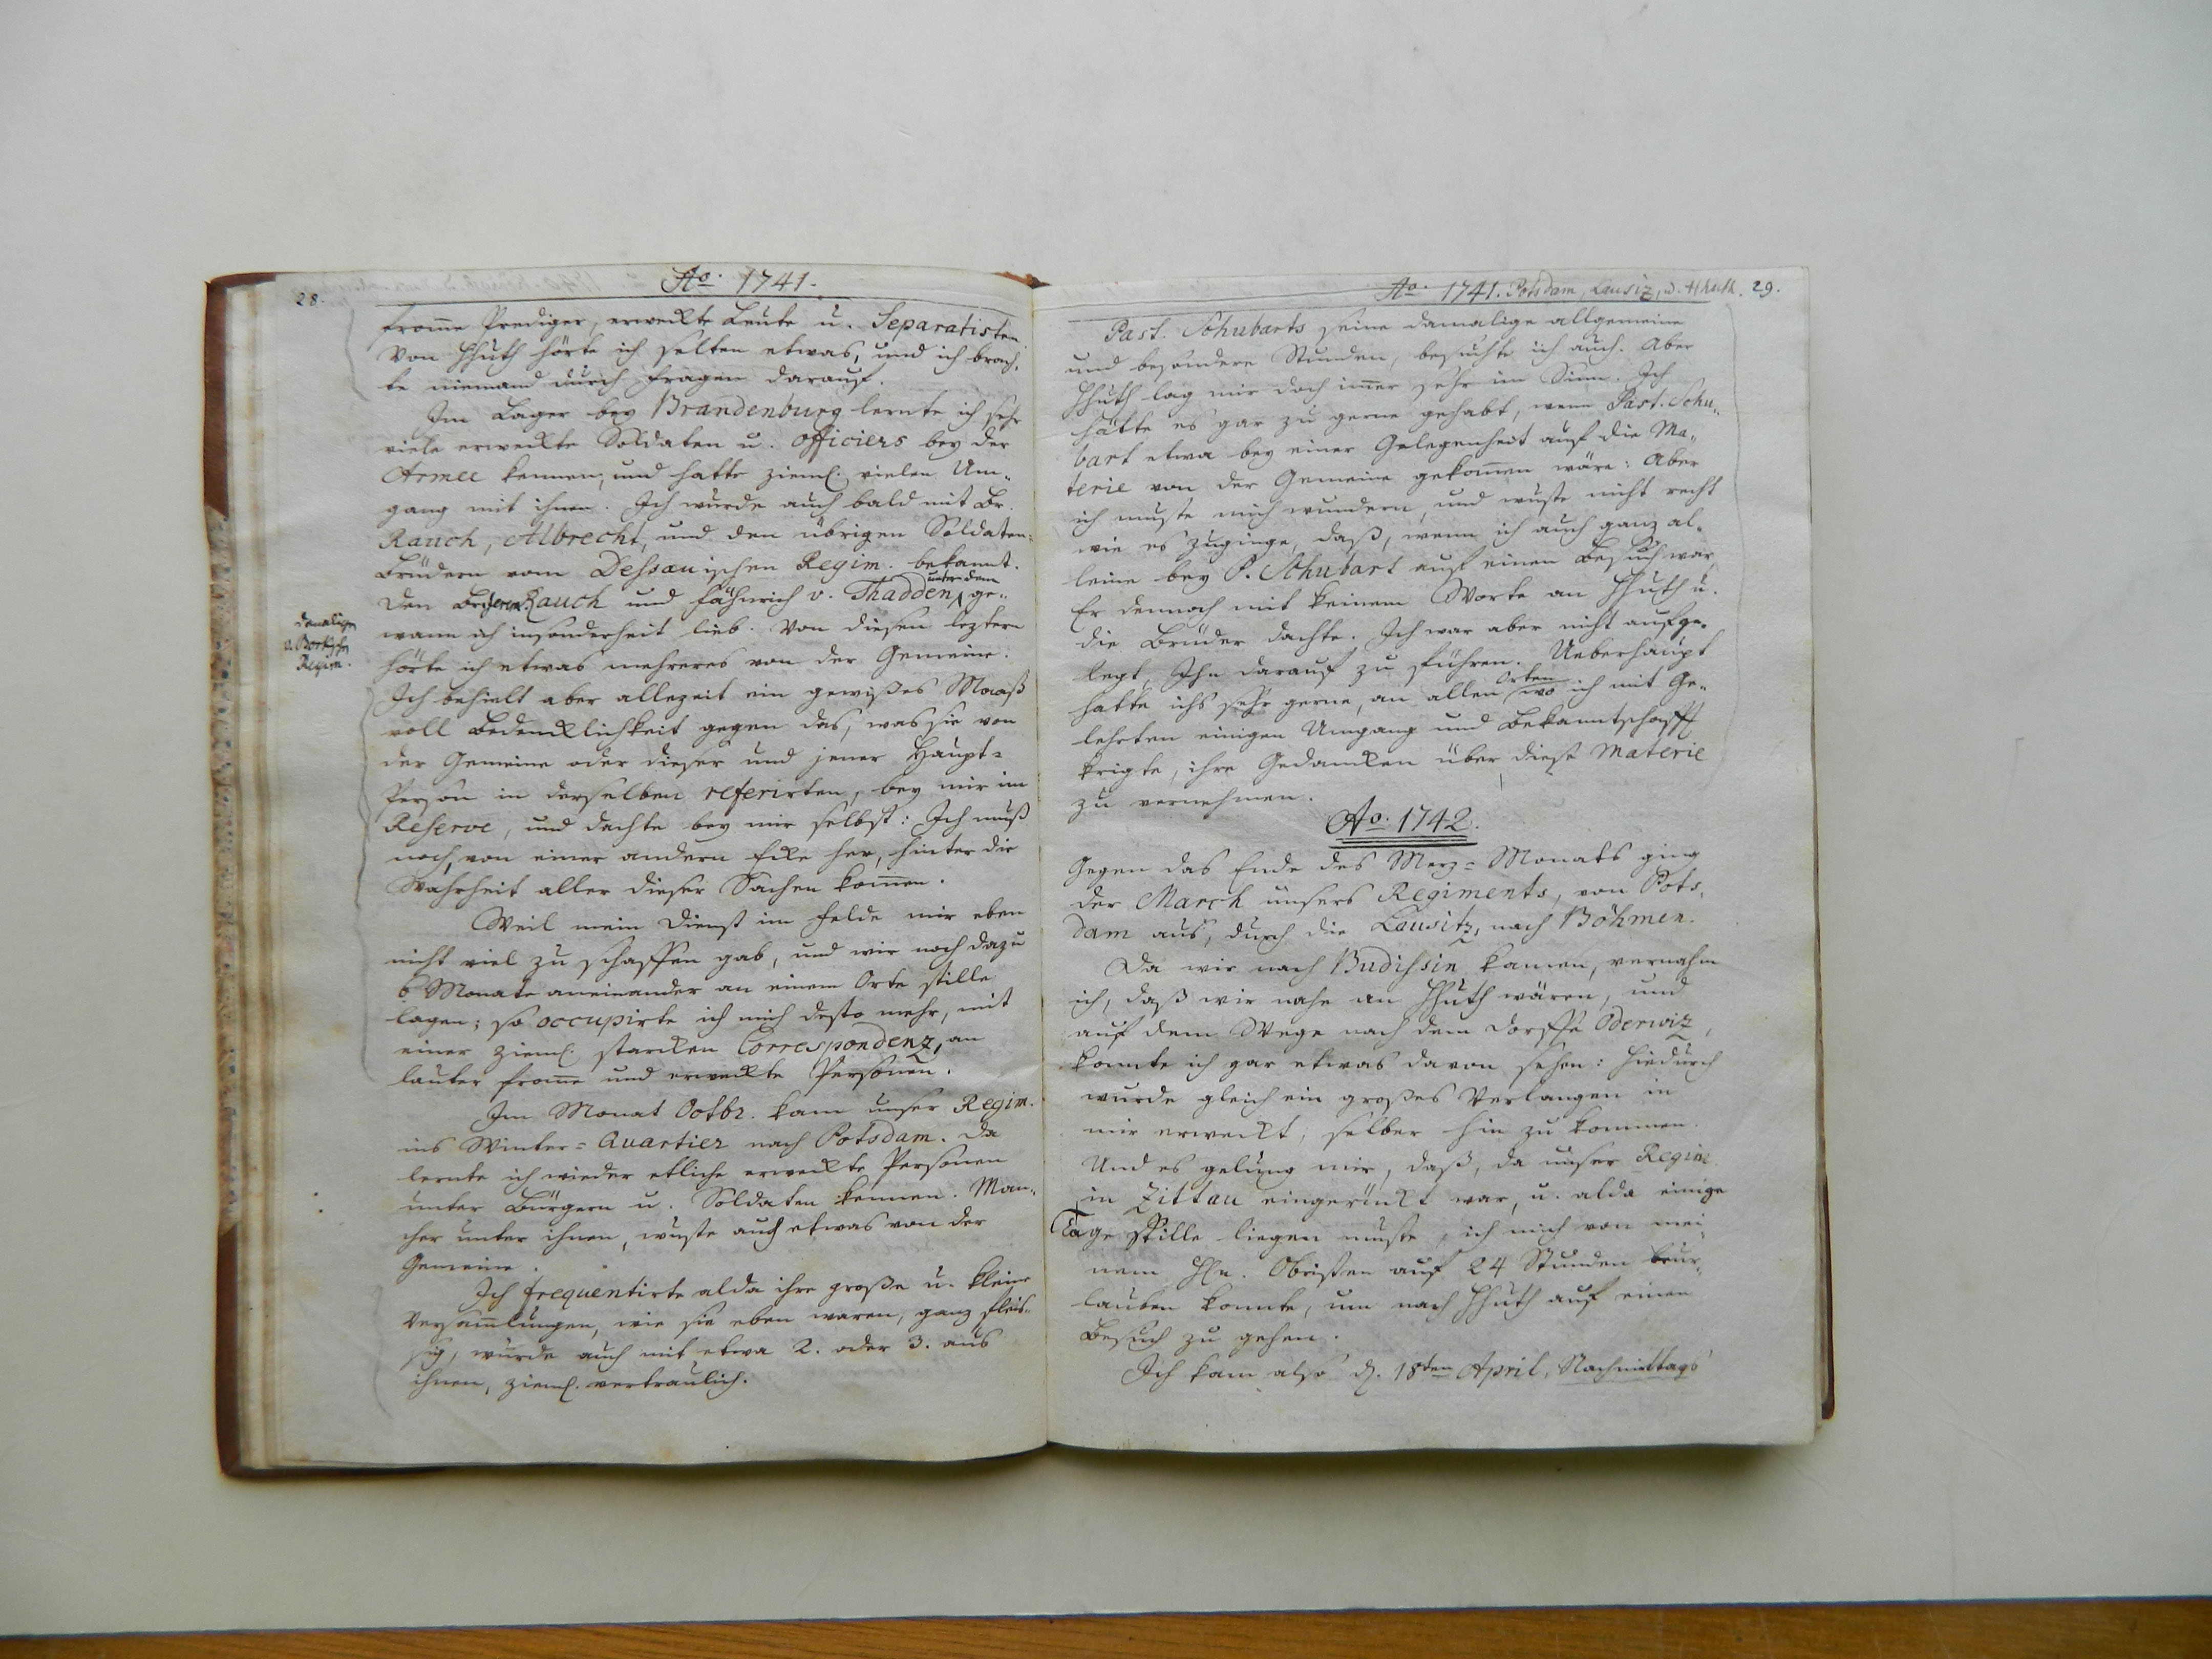 28.
Ao. 1741.
fromme Prediger, erwekte Leute u. Separatisten.
Von Hhuth hörte ich selten etwas, und ich brach-
te niemand durch Fragen darauf.
Im Lager bey Brandenburg lernte ich sehr
viele erwekte Soldaten u. Officiers bey der
Armee kennen, und hatte zieml. vielen Um-
gang mit ihnen. Ich wurde auch bald mit Br.
Rauch, Albrecht, und den übrigen Soldaten-
Brüdern vom Dessauischen Regim. bekannt.
unter dem
Den Rauch und Fähnrich v. Thadden, ge-
damaligen
v. Borkschen
Regim.
wann ich insonderheit lieb. Von diesen leztern
hörte ich etwas mehreres von der Gemeine.
Ich behielt aber allezeit ein gewißes Maaß
voll Bedencklichkeit gegen das, was sie von
der Gemeine oder dieser und jener Haupt-
Person in derselben referirten, bey mir im
Reserve, und dachte bey mir selbst: Ich muß
noch, von einer andern Ecke her, hinter die
Wahrheit aller dieser Sachen kommen.
Weil mein Dienst im Felde mir eben
nicht viel zu schaffen gab, und wir noch dazu
6 Monate aneinander an einem Orte stille
lagen; so occupirte ich mich desto mehr, mit
einer zieml. starcken Correspondenz, an
lauter fromme und erwekte Personen.
Im Monat Octbr. kam unser Regim.
ins Winter-Quartier nach Potsdam. Da
lernte ich wieder etliche erwekte Personen
unter Bürgern u. Soldaten kennen. Man-
cher unter ihnen, wuste auch etwas von der
Gemeine.
Ich frequentirte alda ihre große u. kleine
Versammlungen, wie sie eben waren, ganz fleis-
sig, wurde auch mit etwa 2. oder 3. aus
ihnen, zieml. vertraulich.
Ao. 1741. Potsdam, Lausiz, u. Hhuth. 29.
Past. Schubarts seine damalige allgemeine
und besondere Stunden, besuchte ich auch. Aber
Hhuth lag mir doch immer sehr im Sinn. Ich
hätte es gar zu gerne gehabt, wenn Past. Schu-
bart etwa bey einer Gelegenheit auf die Ma-
terie von der Gemeine gekommen wäre: Aber
ich muste mich wundern, und wuste nicht recht
wie es zuginge, daß, wenn ich auch ganz al-
leine bey P. Schubart auf einen Besuch war,
Er dennoch mit keinem Worte an Hhuth u.
die Brüder dachte. Ich war aber nicht aufge-
legt, Ihn darauf zu führen. Ueberhaupt
Orten
hatte ichs sehr gerne, an allen wo ich mit Ge-
lehrten einigen Umgang und Bekanntschafft
krigte, ihre Gedancken über diese Materie
zu vernehmen.
Ao. 1742.
Gegen das Ende des Merz-Monats ging
der March unsers Regiments, von Pots-
dam aus, durch die Lausitz, nach Böhmen.
Da wir nach Budissin kamen, vernahm
ich, daß wir nahe an Hhuth wären, und
auf dem Wege nach dem Dorffe Oderwiz,
konnte ich gar etwas davon sehen: Hiedurch
wurde gleich ein großes Verlangen in
mir erwekt, selber hin zu kommen.
Und es gelung mir, daß, da unser Regim.
in Zittau eingerückt war, u. alda einige
Tage stille liegen muste, ich mich von mei-
nem Hrn. Obristen auf 24 Stunden beur-
lauben konnte, um nach Hhuth auf einen
Besuch zu gehen.
Ich kam also d. 18ten April, Nachmittags